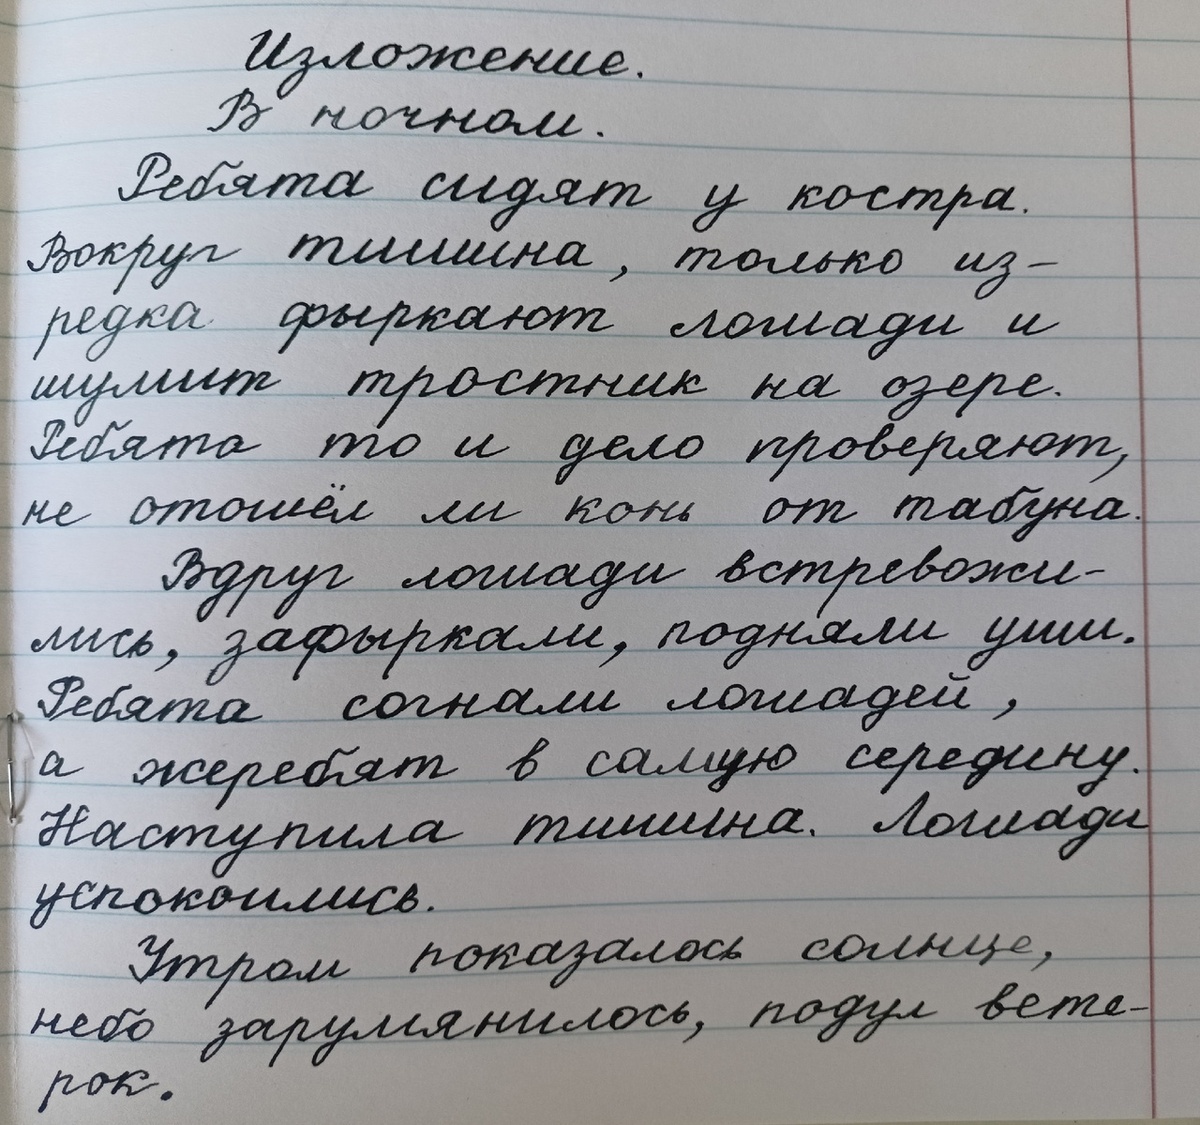 Изложение.
В ночном.
Ребята сидят у костра.
Вокруг тишина, только из-
редка фыркают лошади и
шумит тростник на озере.
Ребята то и дело проверяют,
не отошёл ли конь от табуна.
Вдруг лошади встревожи-
лись, зафыркали, подняли уши.
Ребята согнали лошадей,
а жеребят в самую середину.
Наступила тишина. Лошади
успокоились.
Утром показалось солнце,
небо зарумянилось, подул вете-
рок.